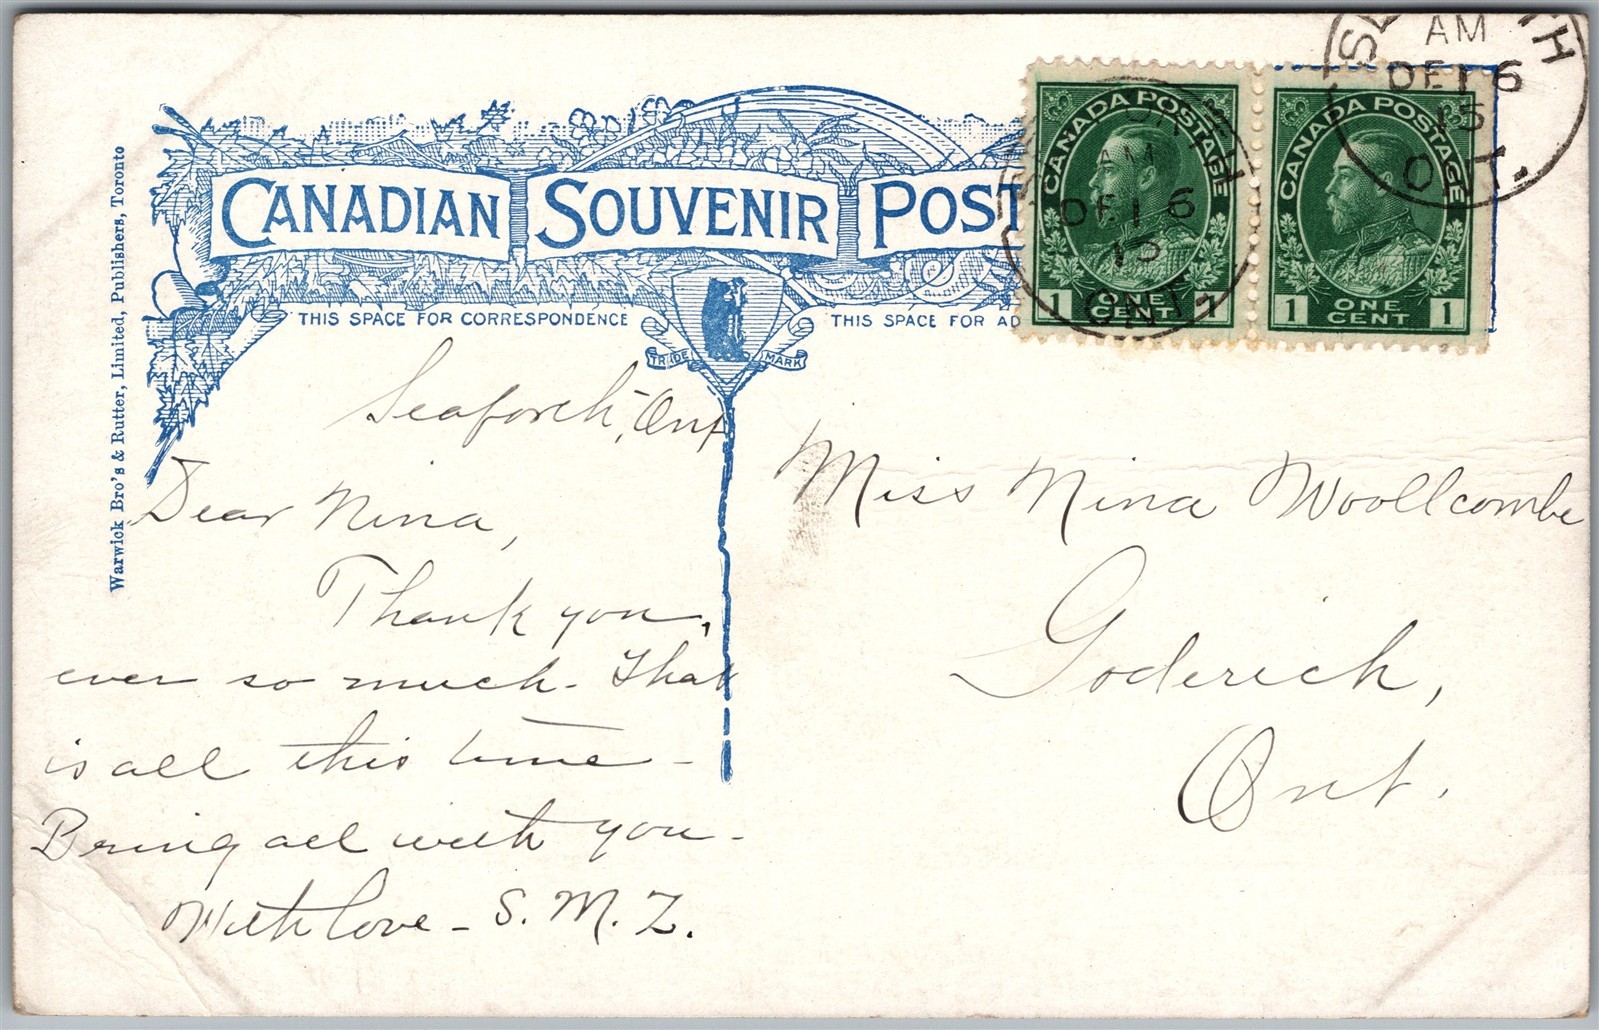 Warwick Bro's & Rutter, Limited, Publishers, Toronto
CANADIAN SOUVENIR POST
THIS SPACE FOR CORRESPONDENCE
THIS SPACE FOR AD
TRADE MARK
CANADA POSTAGE
1 ONE CENT 1
CANADA POSTAGE
1 ONE CENT 1
AM
DE 16
15
ONT.
AM
DE 16
15
ONT.
Seaforth, Ont
Dear Nina,
Thank you,
ever so much. That
is all this time -
Bring all with you -
With love - S. M. Z.
Miss Nina Woollcombe
Goderich,
Ont.